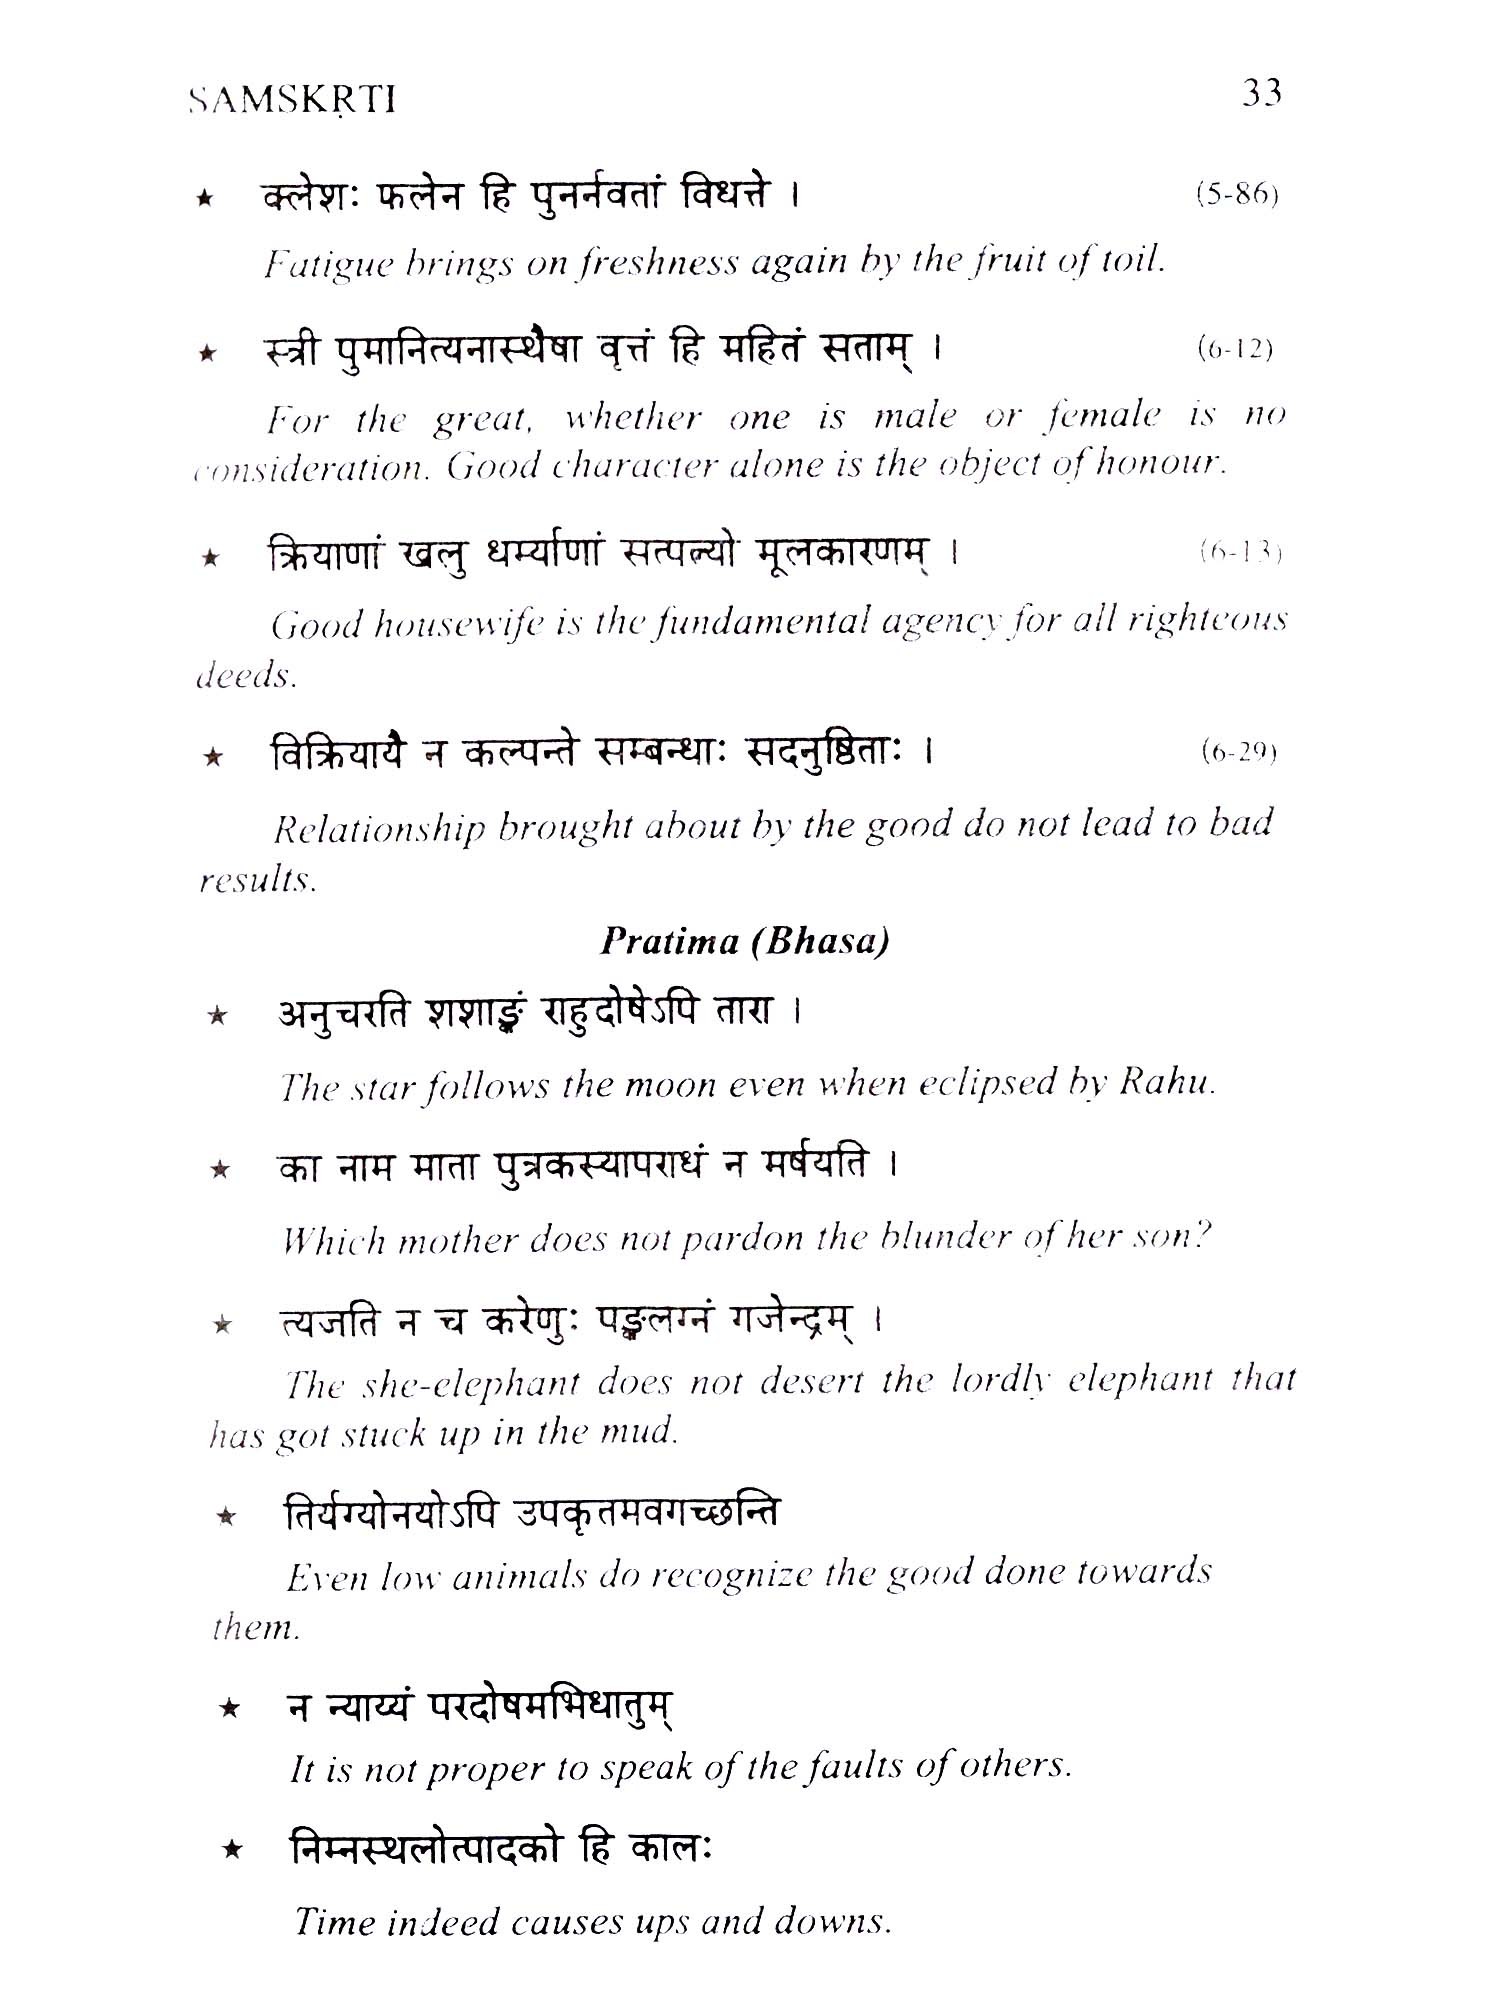 SAMSKṚTI 33
★ क्लेशः फलेन हि पुनर्नवतां विधत्ते । (5-86)
Fatigue brings on freshness again by the fruit of toil.
★ स्त्री पुमानित्यनास्थैषा वृत्तं हि महितं सताम् । (6-12)
For the great, whether one is male or female is no
consideration. Good character alone is the object of honour.
★ क्रियाणां खलु धर्म्याणां सत्पत्न्यो मूलकारणम् । (6-13)
Good housewife is the fundamental agency for all righteous
deeds.
★ विक्रियायै न कल्पन्ते सम्बन्धाः सदनुष्ठिताः । (6-29)
Relationship brought about by the good do not lead to bad
results.
Pratima (Bhasa)
★ अनुचरति शशाङ्कं राहुदोषेऽपि तारा ।
The star follows the moon even when eclipsed by Rahu.
★ का नाम माता पुत्रकस्यापराधं न मर्षयति ।
Which mother does not pardon the blunder of her son?
★ त्यजति न च करेणुः पङ्कलग्नं गजेन्द्रम् ।
The she-elephant does not desert the lordly elephant that
has got stuck up in the mud.
★ तिर्यग्योनयोऽपि उपकृतमवगच्छन्ति
Even low animals do recognize the good done towards
them.
★ न न्याय्यं परदोषमभिधातुम्
It is not proper to speak of the faults of others.
★ निम्नस्थलोत्पादको हि कालः
Time indeed causes ups and downs.